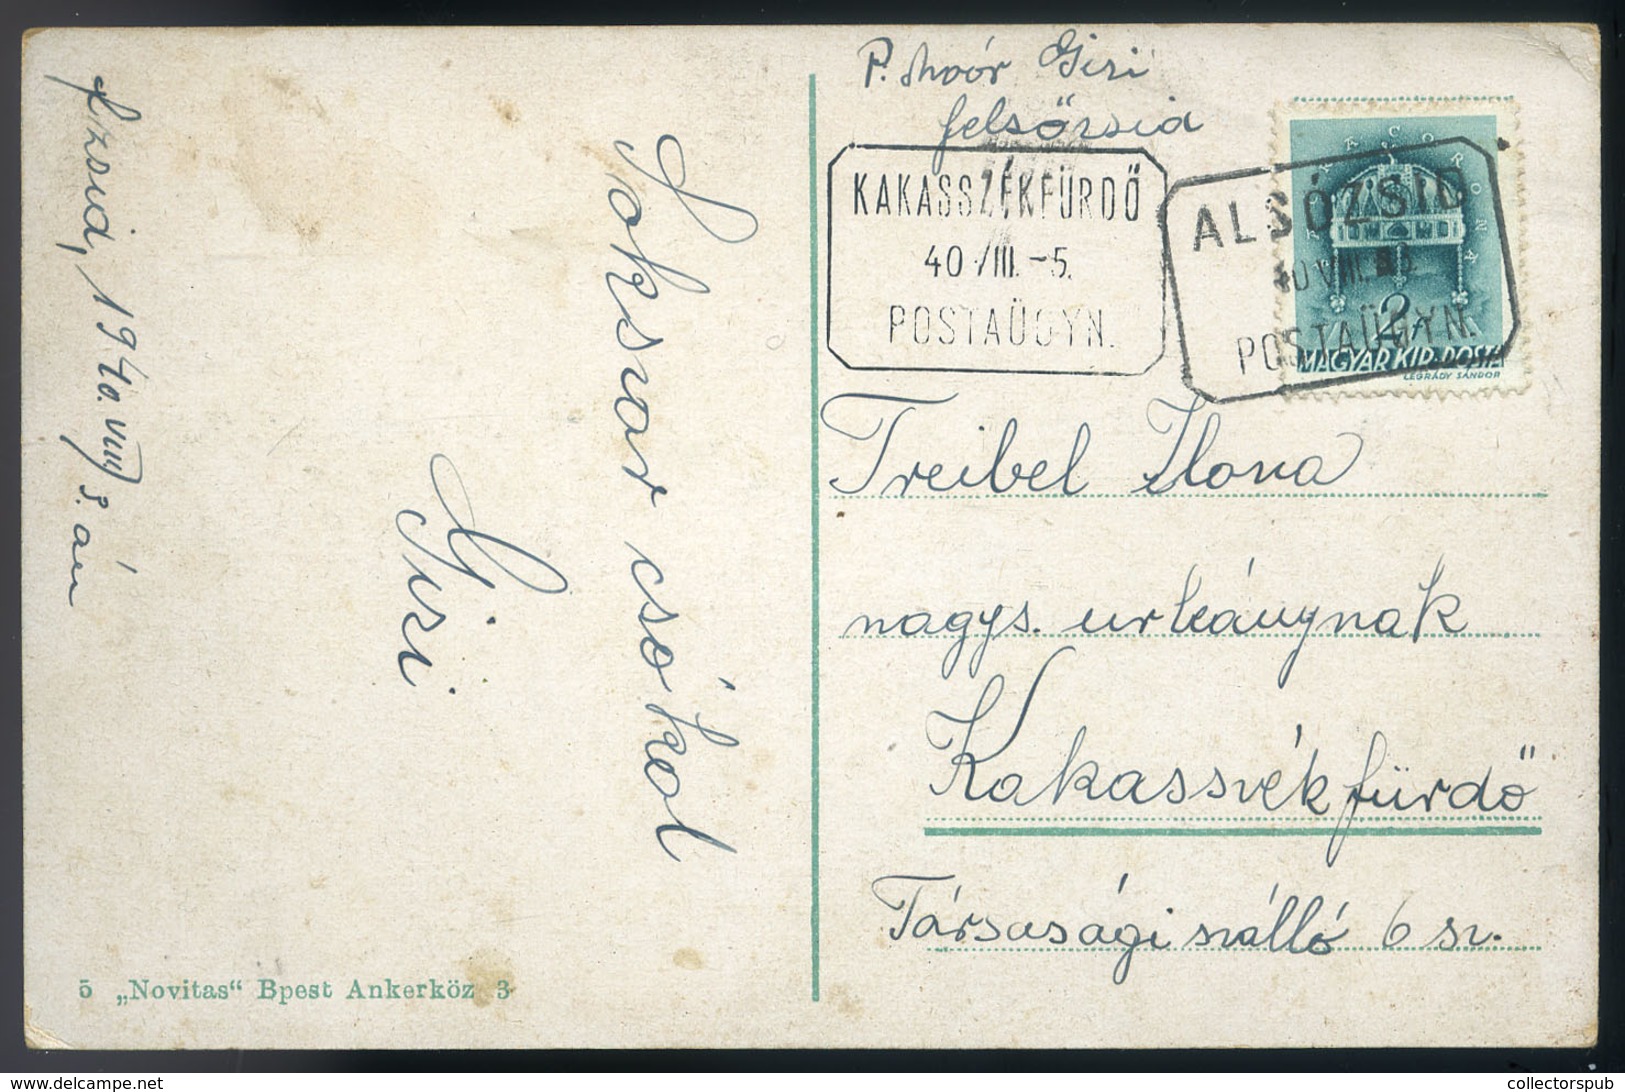 P. Moór Gizi
felsőzsid
KAKASSZÉKFÜRDŐ
40 VIII. -5.
POSTAÜGYN.
ALSÓZSID
40 VIII.
POSTAÜGYN.
SACRA CORONA
2f
MAGYAR KIR. POSTA
LÉGRÁDY SÁNDOR
f.zsid, 1940. VIII 3. án
Sokszor csókol
Gizi
Treibel Ilona
nagys. urleánynak
Kakasszékfürdő
Társasági szálló 6 sz.
5 „Novitas“ Bpest Ankerköz 3
collectorspub